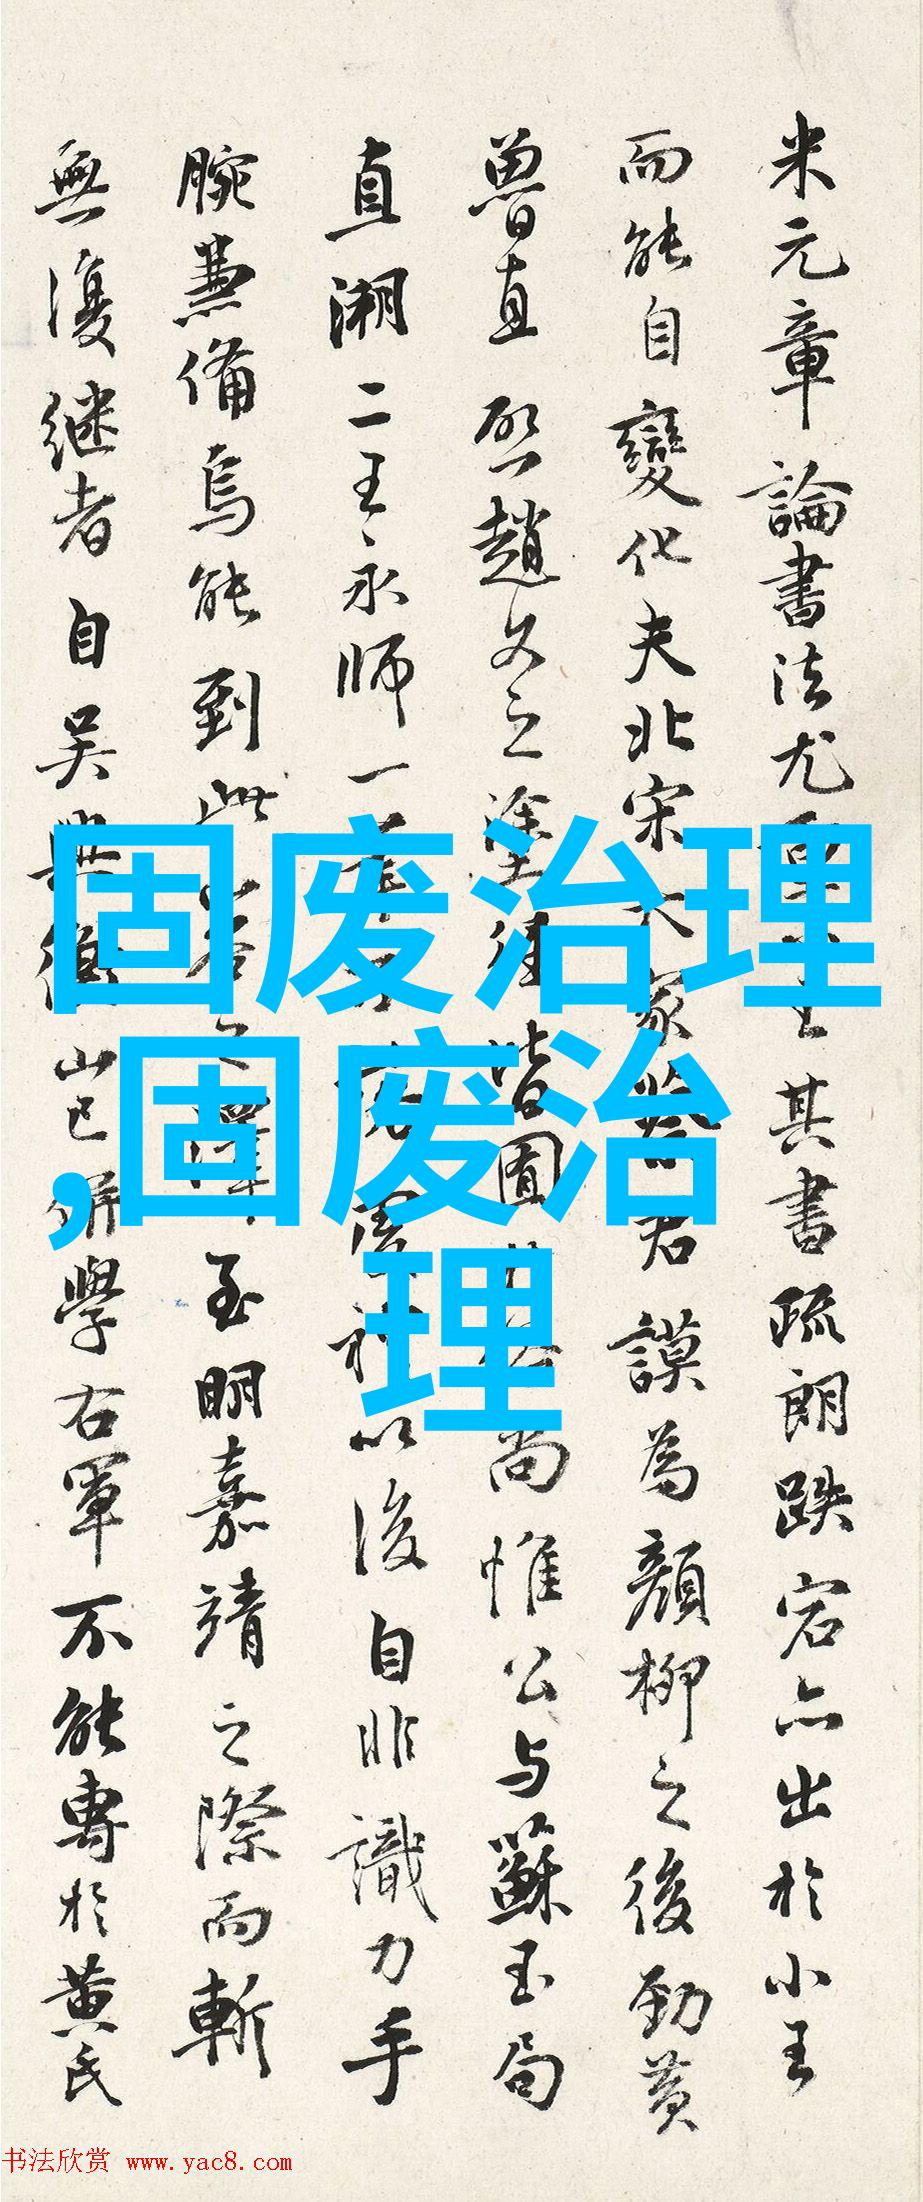 米元章論書法尤其書疏朗跌宕亦出於小王
而能自變化夫北宋大家蔡君謨為顏柳之後勁黃
魯直趙文之塗徑皆囿尚惟公与蘇玉局
直溯二王永師一以後自非識力手
腕兼備烏能到此至明嘉靖之際而斬
無復继者自吴興山已學右軍不能專於黄氏
固废治理
,固废治
理
书法欣赏 www.yac8.com